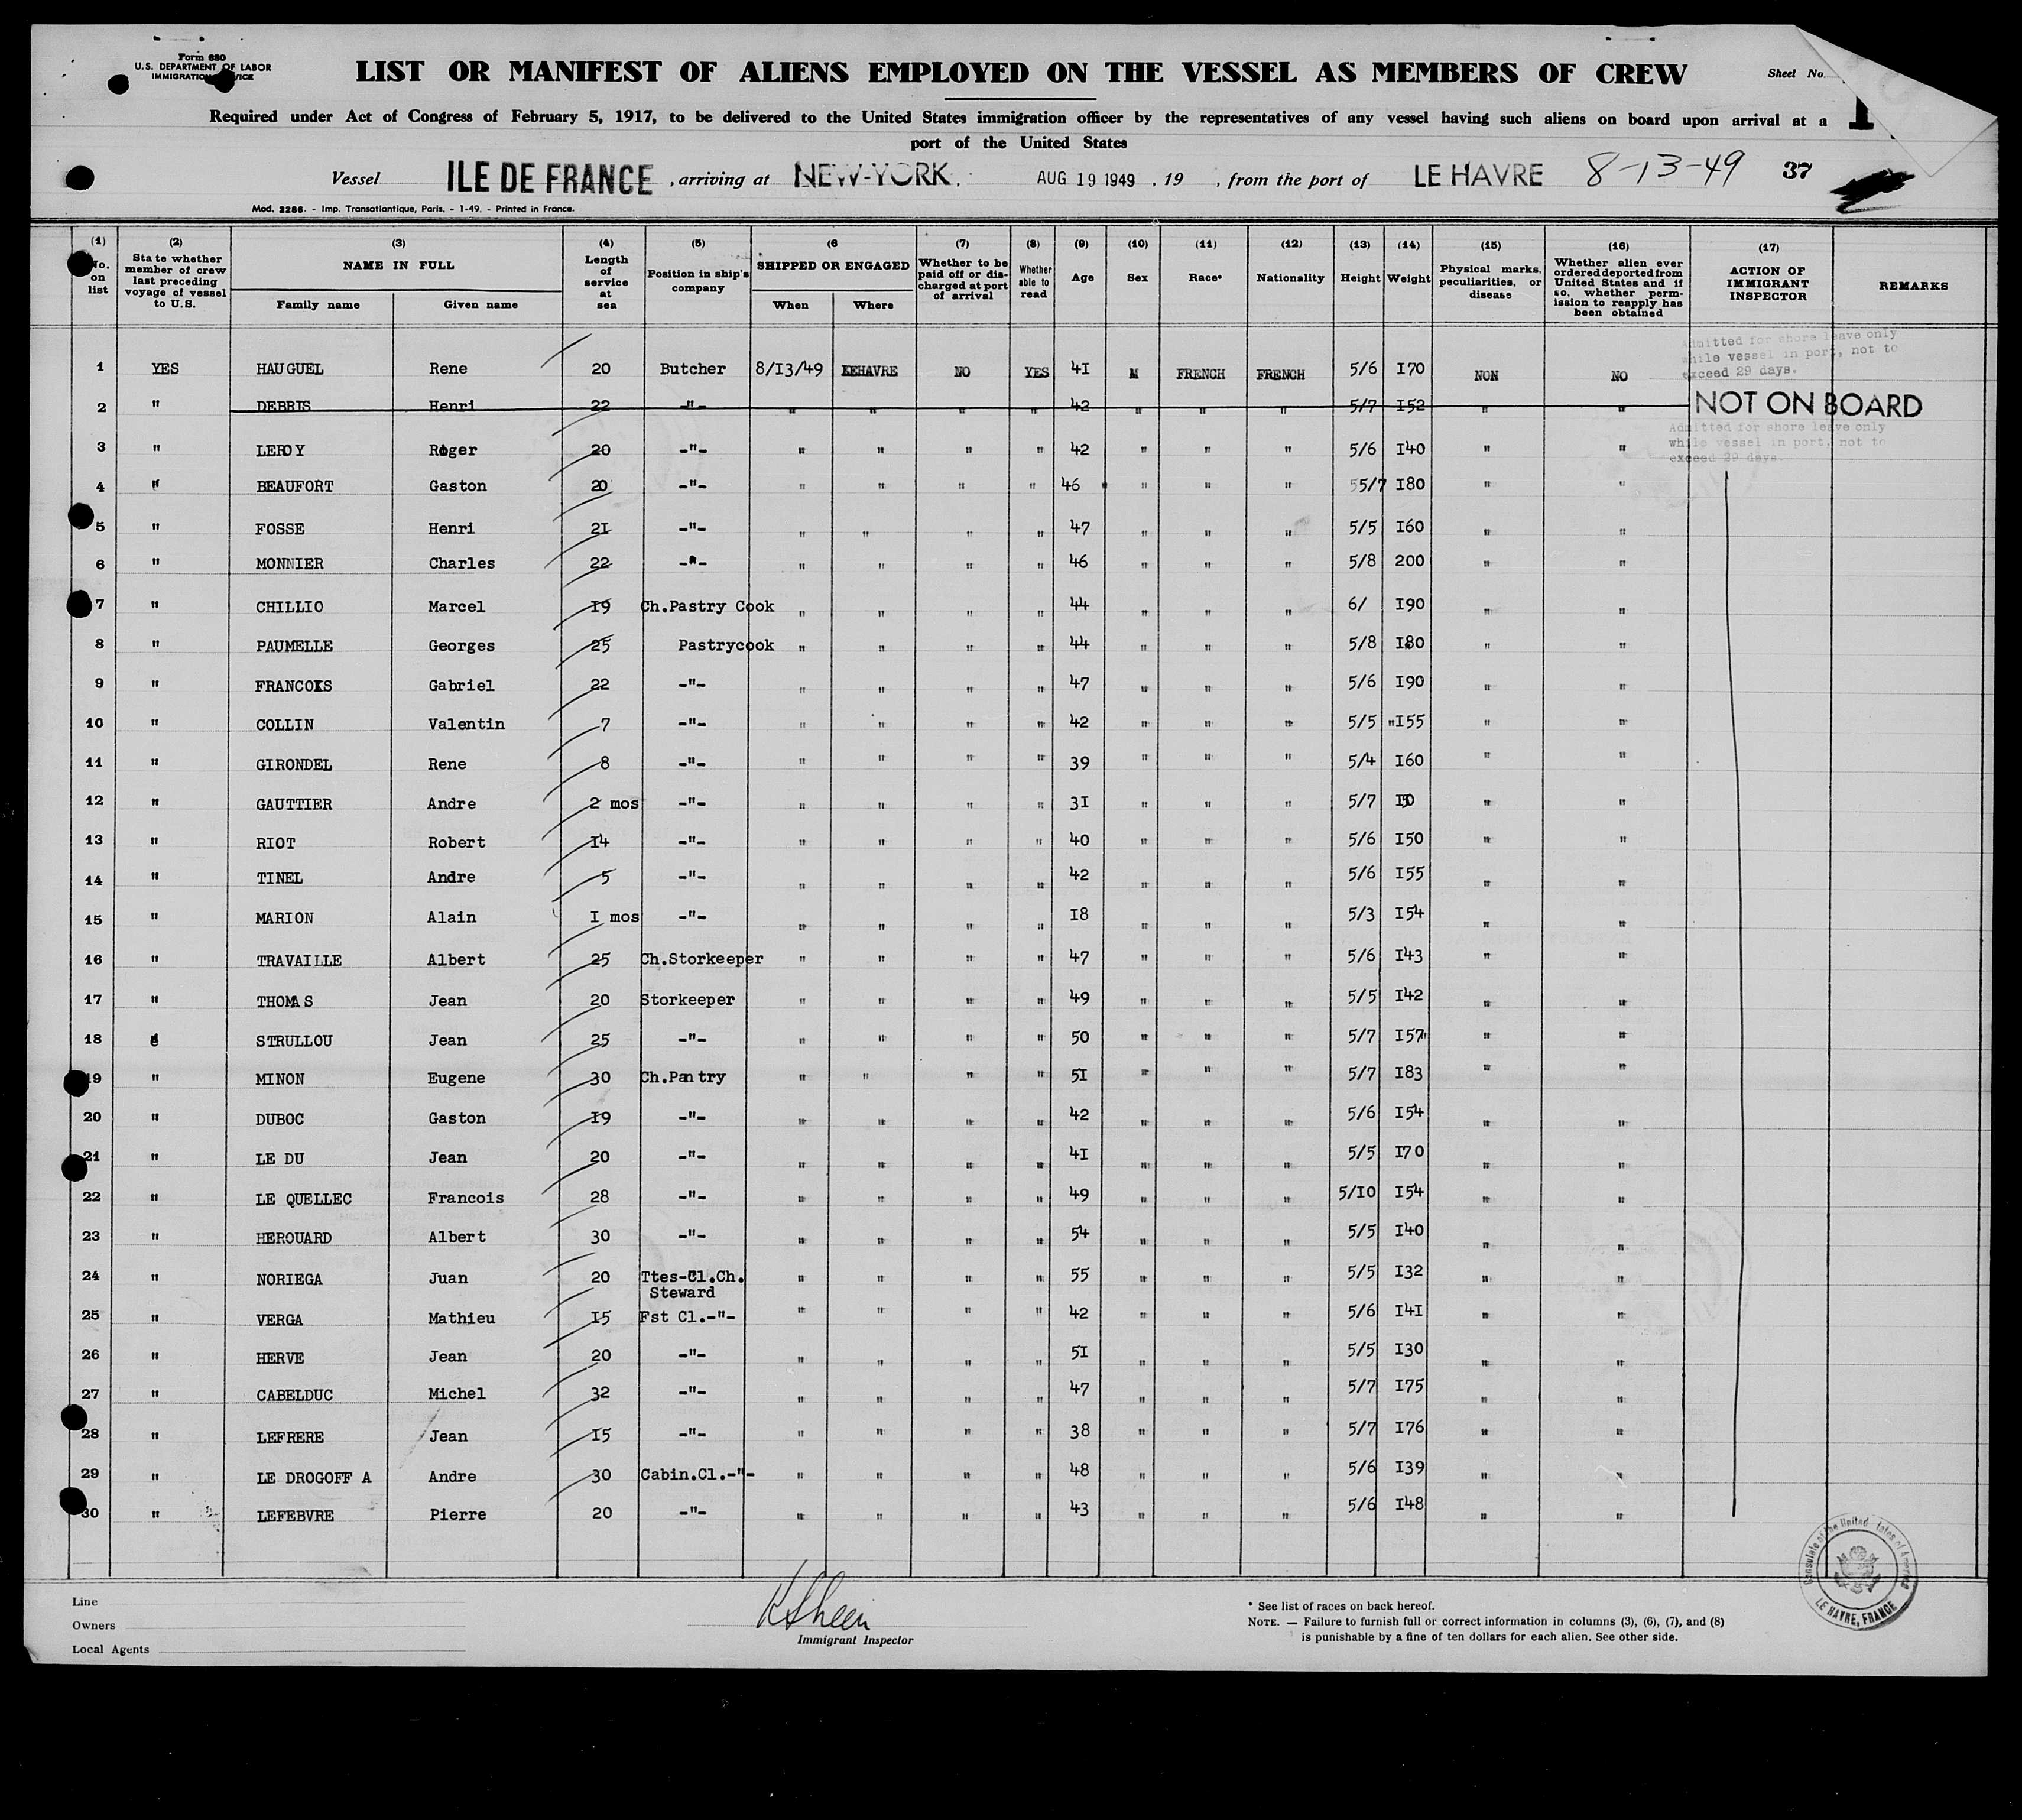 Form 680
U.S. DEPARTMENT OF LABOR
IMMIGRATION SERVICE
LIST OR MANIFEST OF ALIENS EMPLOYED ON THE VESSEL AS MEMBERS OF CREW
Sheet No.
Required under Act of Congress of February 5, 1917, to be delivered to the United States immigration officer by the representatives of any vessel having such aliens on board upon arrival at a
port of the United States
Vessel ILE DE FRANCE, arriving at NEW-YORK. AUG 19 1949, 19 , from the port of LE HAVRE 8-13-49 37
Mod. 2286. - Imp. Transatlantique, Paris. - 1-49. - Printed in France.
(1) No. on list (2) State whether member of crew last preceding voyage of vessel to U.S. (3) NAME IN FULL Family name Given name (4) Length of service at sea (5) Position in ship's company (6 SHIPPED OR ENGAGED When Where (7) Whether to be paid off or discharged at port of arrival (8) Whether able to read (9) Age (10) Sex (11) Race* (12) Nationality (13) Height (14) Weight (15) Physical marks, peculiarities, or disease (16) Whether alien ever ordered deported from United States and if so, whether permission to reapply has been obtained (17) ACTION OF IMMIGRANT INSPECTOR REMARKS
Admitted for shore leave only
while vessel in port, not to
exceed 29 days.
1 YES HAUGUEL Rene 20 Butcher 8/I3/49 LEHAVRE NO YES 4I M FRENCH FRENCH 5/6 I70 NON NO
2 " DEBRIS Henri 22 -"- " " " " 42 " " " 5/7 I52 " " NOT ON BOARD
Admitted for shore leave only
while vessel in port, not to
exceed 29 days.
3 " LEROY Roger 20 -"- " " " " 42 " " " 5/6 I40 " "
4 " BEAUFORT Gaston 20 -"- " " " " 46 " " " 55/7 I80 " "
5 " FOSSE Henri 2I -"- " " " " 47 " " " 5/5 I60 " "
6 " MONNIER Charles 22 -"- " " " " 46 " " " 5/8 200 " "
7 " CHILLIO Marcel I9 Ch.Pastry Cook " " " " 44 " " " 6/ I90 " "
8 " PAUMELLE Georges 25 Pastrycook " " " " 44 " " " 5/8 I80 " "
9 " FRANCOIS Gabriel 22 -"- " " " " 47 " " " 5/6 I90 " "
10 " COLLIN Valentin 7 -"- " " " " 42 " " " 5/5 "I55 " "
11 " GIRONDEL Rene 8 -"- " " " " 39 " " " 5/4 I60 " "
12 " GAUTTIER Andre 2 mos -"- " " " " 3I " " " 5/7 I50 " "
13 " RIOT Robert I4 -"- " " " " 40 " " " 5/6 I50 " "
14 " TINEL Andre 5 -"- " " " " 42 " " " 5/6 I55 " "
15 " MARION Alain I mos -"- " " " " I8 " " " 5/3 I54 " "
16 " TRAVAILLE Albert 25 Ch.Storkeeper " " " " 47 " " " 5/6 I43 " "
17 " THOMAS Jean 20 Storkeeper " " " " 49 " " " 5/5 I42 " "
18 STRULLOU Jean 25 -"- " " " " 50 " " " 5/7 I57 " "
19 " MINON Eugene 30 Ch.Pantry " " " " 5I " " " 5/7 I83 " "
20 " DUBOC Gaston I9 -"- " " " " 42 " " " 5/6 I54 " "
21 " LE DU Jean 20 -"- " " " " 4I " " " 5/5 I70 " "
22 " LE QUELLEC Francois 28 -"- " " " " 49 " " " 5/I0 I54 " "
23 " HEROUARD Albert 30 -"- " " " " 54 " " " 5/5 I40 " "
24 " NORIEGA Juan 20 Ttes-Cl.Ch. Steward " " " " 55 " " " 5/5 I32 " "
25 " VERGA Mathieu I5 Fst Cl.-"- " " " " 42 " " " 5/6 I4I " "
26 " HERVE Jean 20 -"- " " " " 5I " " " 5/5 I30 " "
27 " CABELDUC Michel 32 -"- " " " " 47 " " " 5/7 I75 " "
28 " LEFRERE Jean I5 -"- " " " " 38 " " " 5/7 I76 " "
29 " LE DROGOFF A Andre 30 Cabin.Cl.-"- " " " " 48 " " " 5/6 I39 " "
30 " LEFEBVRE Pierre 20 -"- " " " " 43 " " " 5/6 I48 " "
Consulate of the United States of America
LE HAVRE, FRANCE
Line
Owners
Local Agents
Immigrant Inspector
* See list of races on back hereof.
NOTE. — Failure to furnish full or correct information in columns (3), (6), (7), and (8)
is punishable by a fine of ten dollars for each alien. See other side.